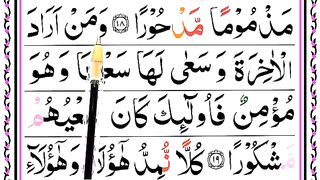 مَذْمُوْمًا مَّدْحُوْرًا ۝١٨ وَمَنْ اَرَادَ
الْاٰخِرَةَ وَسَعٰى لَهَا سَعْيَهَا وَهُوَ
مُؤْمِنٌ فَاُولٰٓئِكَ كَانَ سَعْيُهُمْ
مَّشْكُوْرًا ۝١٩ كُلًّا نُّمِدُّ هٰٓؤُلَآءِ وَهٰٓؤُلَآءِ